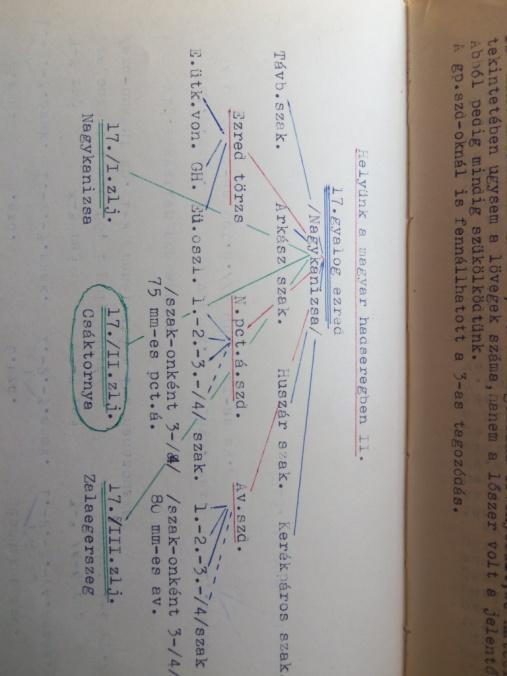 tekintetében ugysem a lövegek száma, hanem a lőszer volt a jelentő
Abból pedig mindig szükölködtünk.
A gp.szd-oknál is fennállhatott a 3-as tagozódás.
Helyünk a magyar hadseregben II.
17.gyalog ezred
/Nagykanizsa/
Távb.szak. Árkász szak. Huszár szak. Kerékpáros szak.
Ezred törzs N.pct.á.szd. Av.szd.
E.ütk.von. GH. Eü.oszl. 1.-2.-3.-/4/ szak. 1.-2.-3.-/4/szak
/szak-onként 3-/4/ /szak-onként 3-/4/
75 mm-es pct.á. 80 mm-es av.
17./I.zlj. 17./II.zlj. 17./III.zlj.
Nagykanizsa Csáktornya Zalaegerszeg